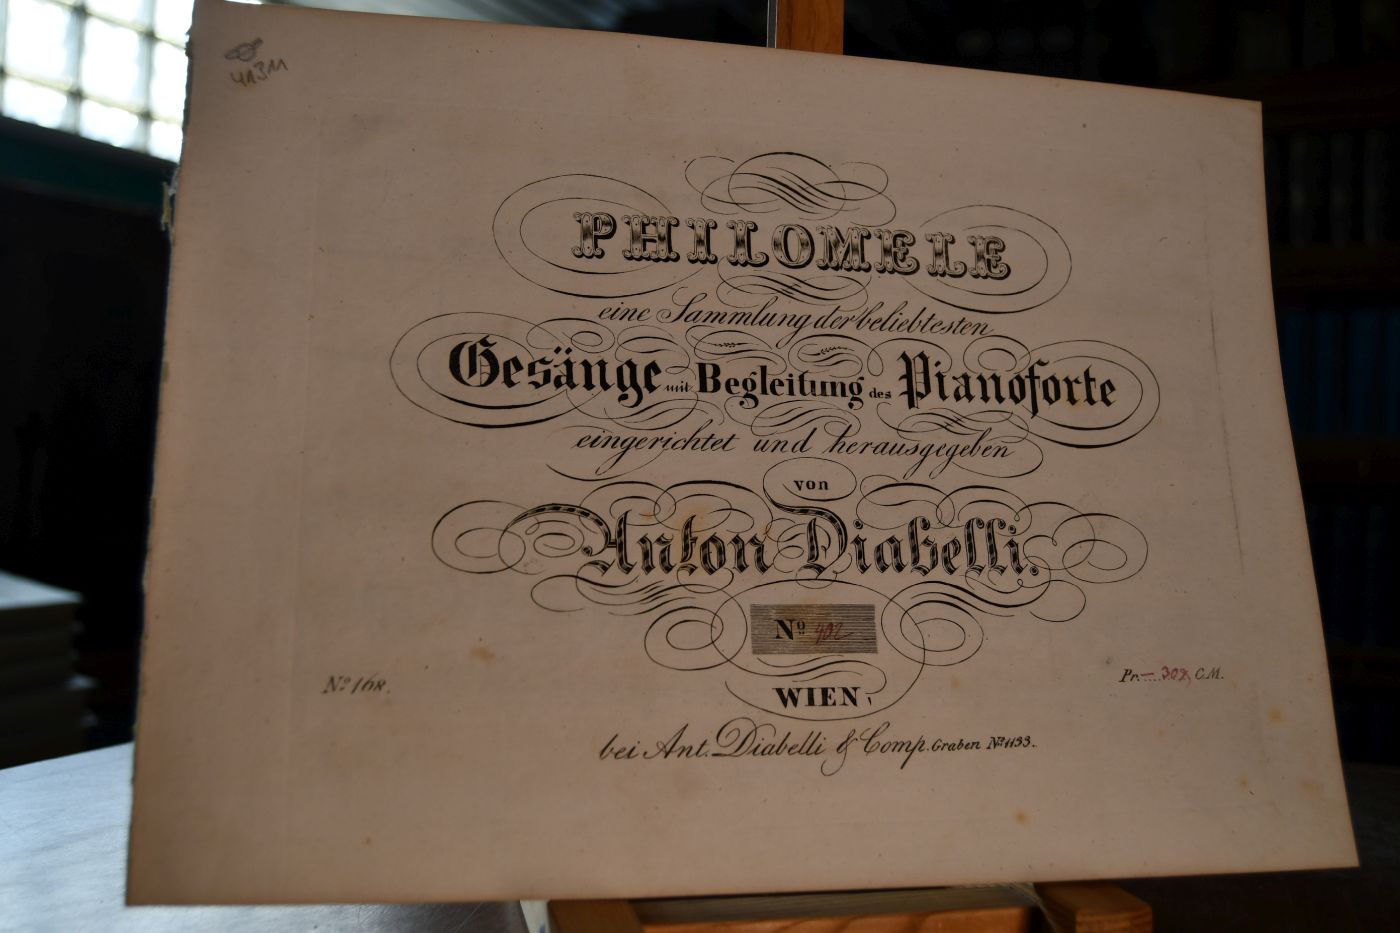 PHILOMELE
eine Sammlung der beliebtesten
Gesänge mit Begleitung des Pianoforte
eingerichtet und herausgegeben
von
Anton Diabelli.
No 402
No 168.
Pr. – 30x C.M.
WIEN,
bei Ant. Diabelli & Comp. Graben No 1133.